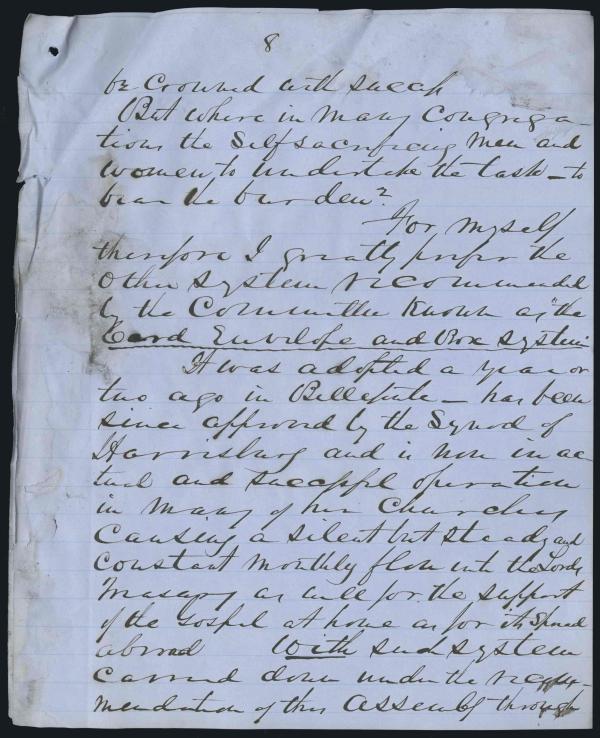 8
be Crowned with success
But where in Many Congrega-
tions the Self sacrificing Men and
women to undertake the task – to
bear the burden?
For myself
therefore I greatly prefer the
other system recommended
by the Committee Known as "the
Card Envelope and Box system
It was adopted a year or
two ago in Bellefonte – has been
since approved by the Synod of
Harrisburg and is now in ac
tual and successful operation
in Many of her Churches
Causing a silent but steady and
Constant Monthly flow into the Lords
Treasury as well for the support
of the Gospel at home as for its Spread
abroad With such system
Carried down under the recom-
mendation of this Assembly through